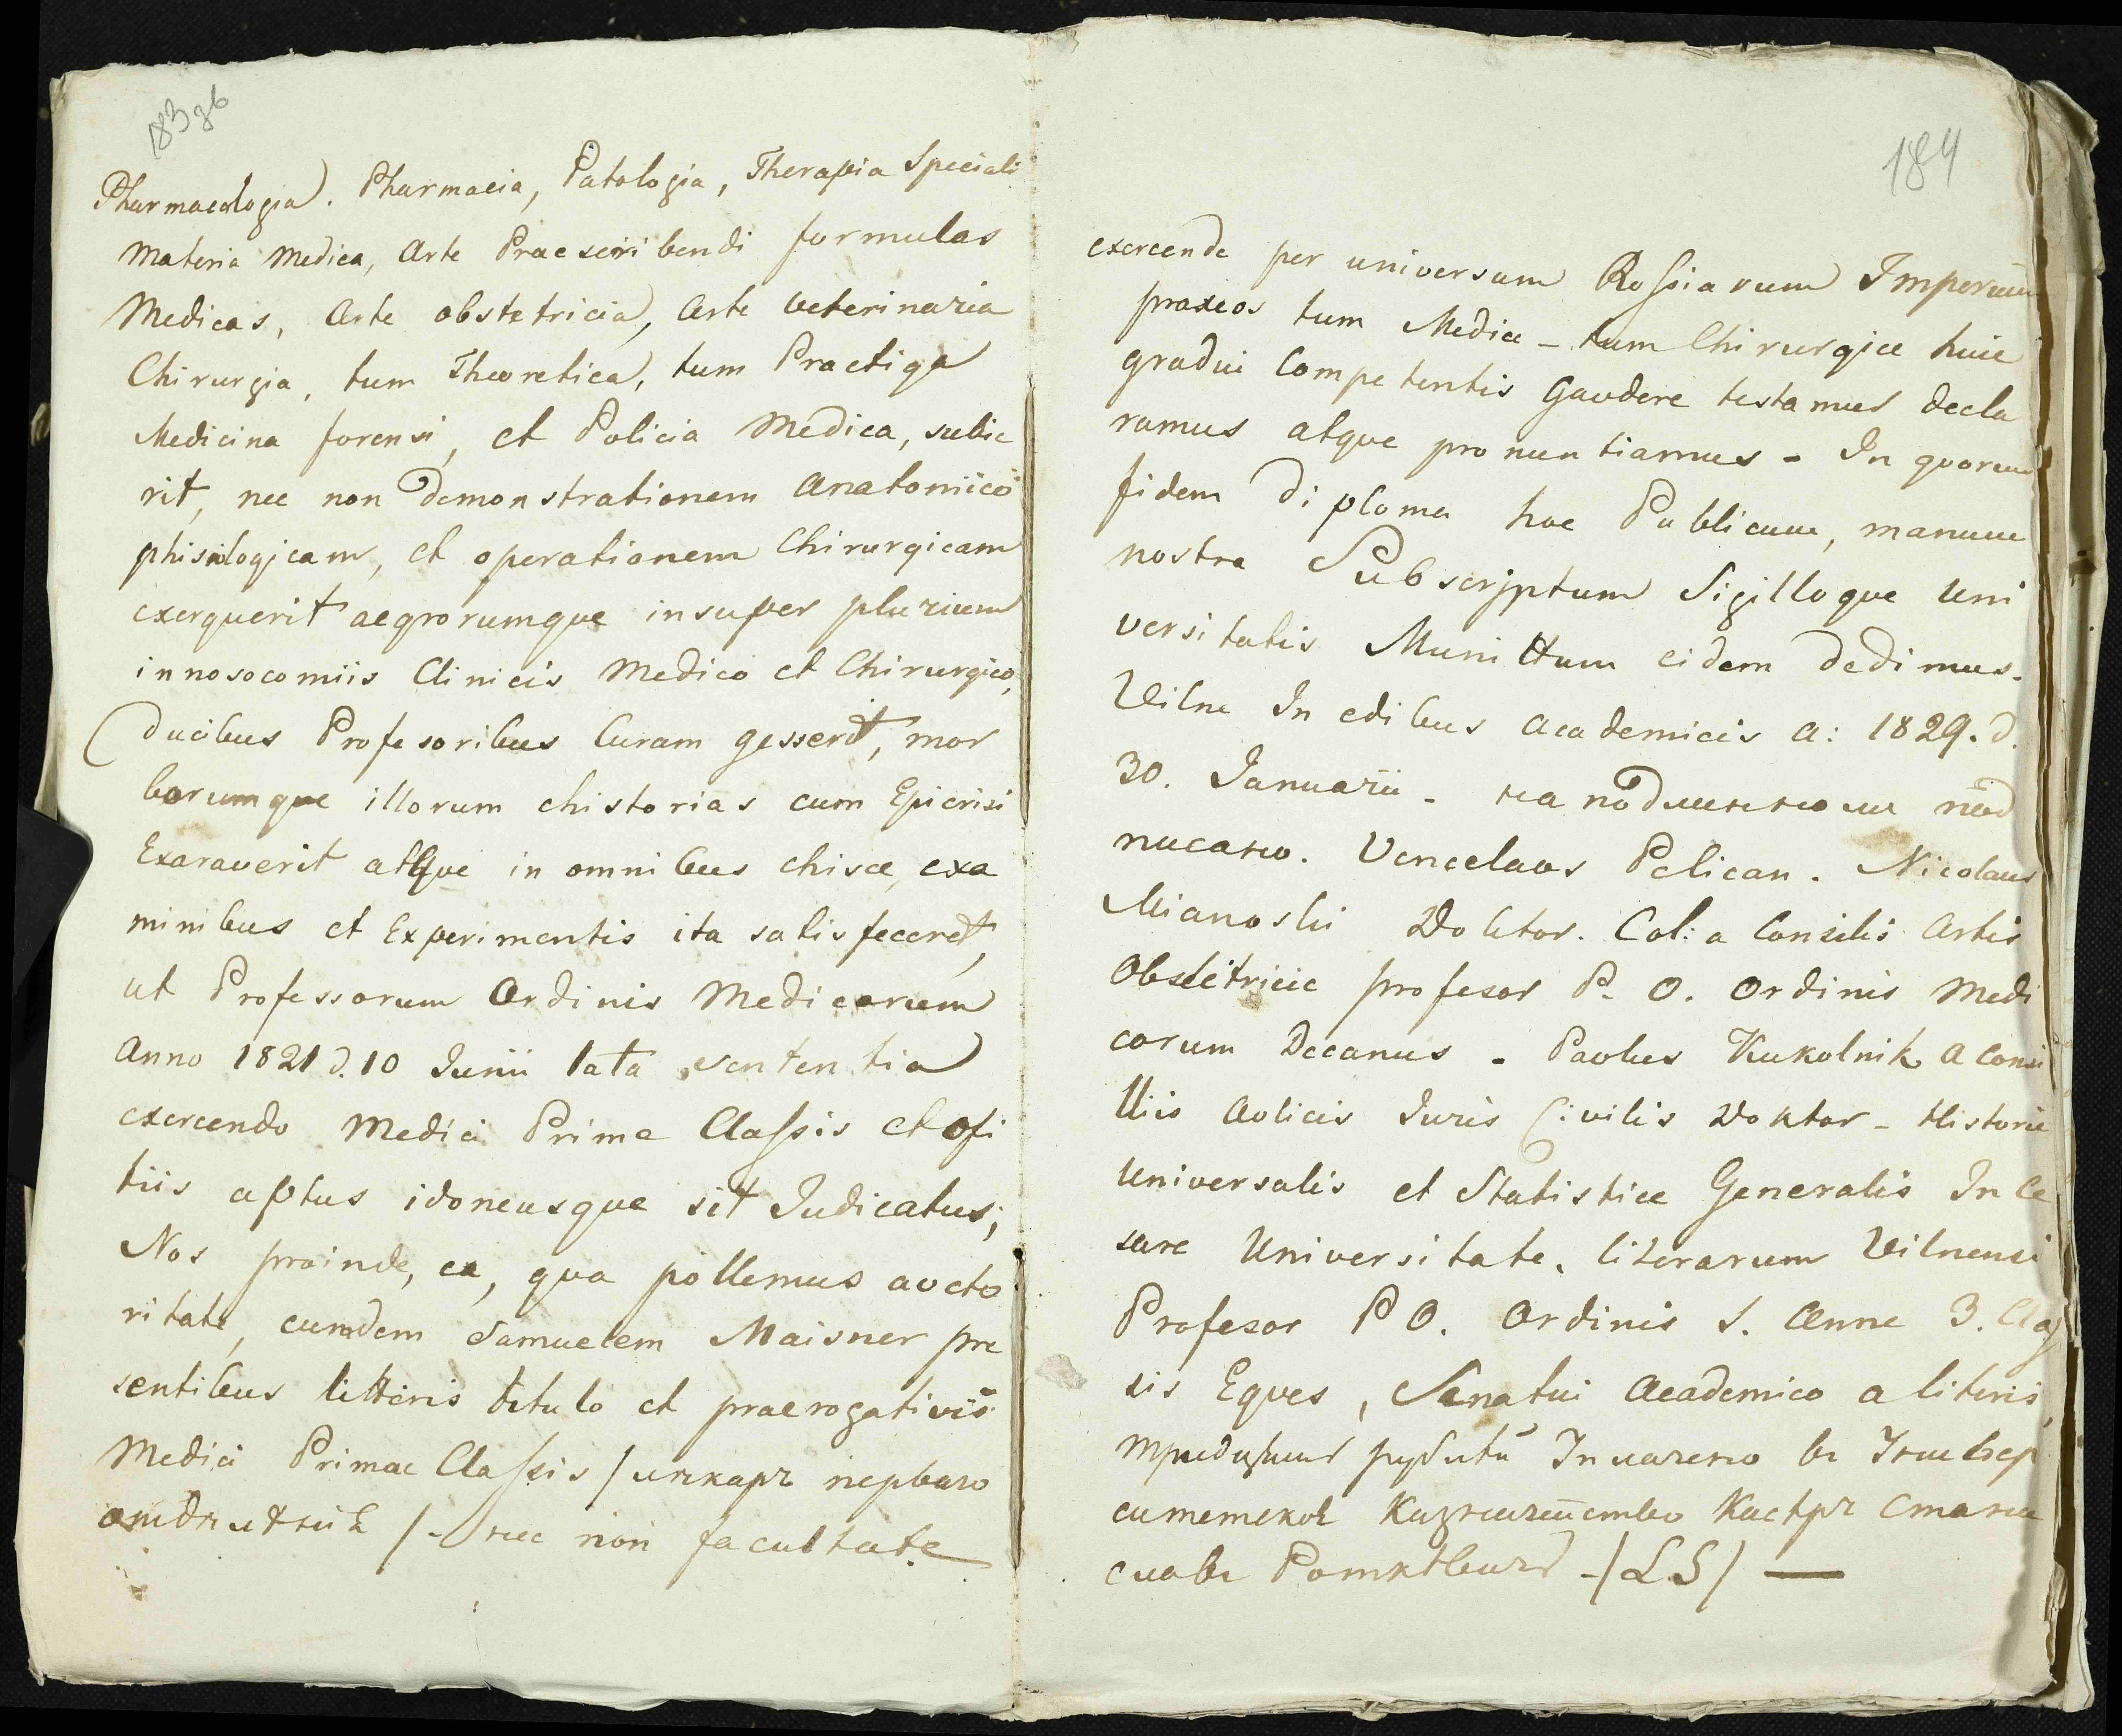 183 об
Pharmacologia. Pharmacia, Patologia, Therapia Speciali
Materia Medica, Arte Praescribendi formulas
Medicas, Arte obstetricia, Arte veterinaria
Chirurgia, tum Theoretica, tum Practiga
Medicina forensi, et Policia Medica, subie
rit, nec non Demonstrationem Anatomico
phisiologicam, et operationem Chirurgicam
exerguerit aegrorumque insuper plurium
in nosocomiis Clinicis Medico et Chirurgico,
Ducibus Profesoribus Curam gesserit, mor
borumque illorum chistorias cum Epicrisi
Exaraverit atque in omnibus chisce, exa
minibus et Experimentis ita satisfecerit,
ut Professorum Ordinis Medicorum
Anno 1821 d. 10 Junii lata sententia
exercendo Medici Prime Classis et ofi
tiis aptus idoneusque sit Judicatus;
Nos proinde, ea, qua pollemus aucto
ritate, eumdem Samuelem Maisner pre
sentibus litteris titulo et praerogativis
Medici Primae Classis / первого
/ - nec non facultate
184
exercende per universum Rossiarum Imperium
praxeos tum Medice - tum Chirurgice huic
gradui Competentis Gaudere testamus decla
ramus atque pronuntiamus - In quorum
fidem Diploma hoc Publicum, manum
nostra Subscriptum Sigilloque Uni
versitatis Munittum eidem dedimus.
Vilne In edibus Academicis A: 1829. d.
30. Januarii - на подлинном под
писано. Vencelaus Pelican. Nicolaus
Mianoski Doktor. Col: a Consilis Artis
Obstetricie profesor P. O. Ordinis Medi
corum Decanus - Paulus Kukolnik A Consi
liis Aulicis Juris Civilis Doktor - Historie
Universalis et Statistice Generalis In Ce
sare Universitate, literarum Vilnensi
Profesor P O. Ordinis S. Anne 3. Clas
sis Eques, Senatui Academico a literis,
рублей In
Казначейство
/ L.S / —